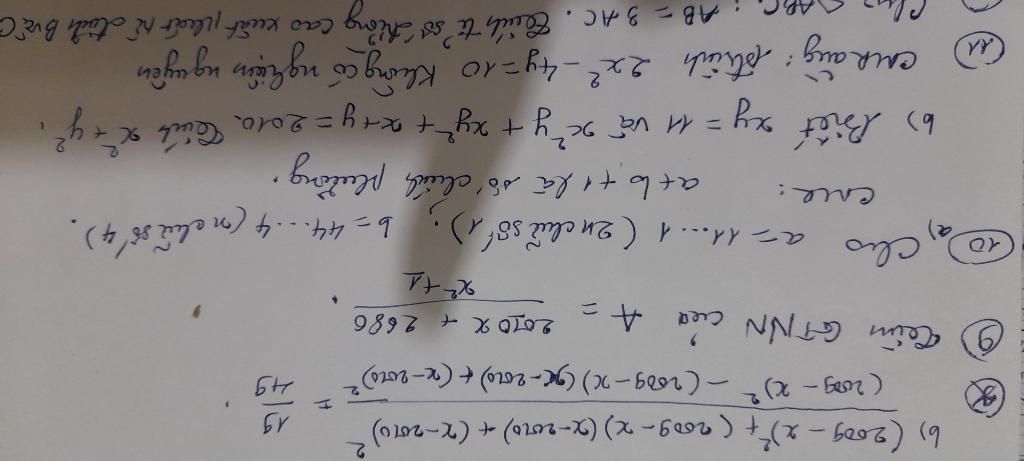 b) (2009 - x)² + (2009 - x)(x - 2010) + (x - 2010)² / (2009 - x)² - (2009 - x)(x - 2010) + (x - 2010)² = 19/49 .
⑨ Tìm GTNN của A = 2010x + 2680 / x² + 1 .
⑩ a, Cho a = 11...1 (2n chữ số 1) ; b = 44...4 (n chữ số 4) .
CMR : a + b + 1 là số chính phương .
b) Biết xy = 11 và x²y + xy² + x + y = 2010. Tính x² + y² .
⑪ CM rằng : phtrình 2x² - 4y = 10 không có nghiệm nguyên
Cho △ABC : AB = 3AC . Tính tỉ số đường cao xuất phát từ đỉnh B và C